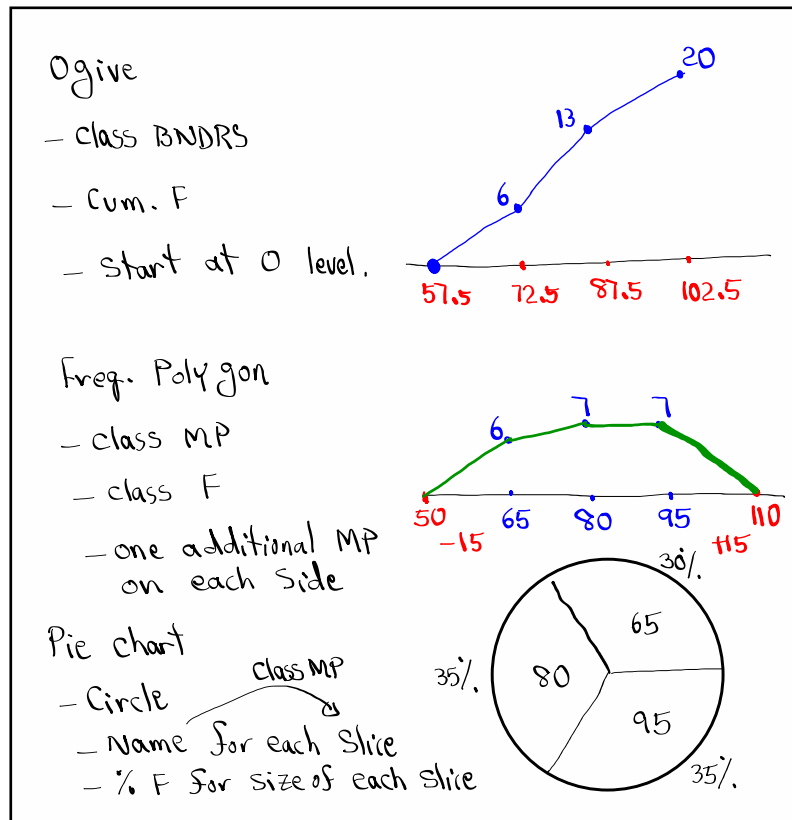 Ogive
- Class BNDRS
- Cum. F
- Start at 0 level.
6
13
20
57.5 72.5 87.5 102.5
Freq. Polygon
- class MP
- class F
- one additional MP
on each Side
6 7 7
50 65 80 95 110
-15 +15
Pie chart
- Circle
Class MP
- Name for each Slice
- % F for size of each slice
30%
65
35%
80
95
35%